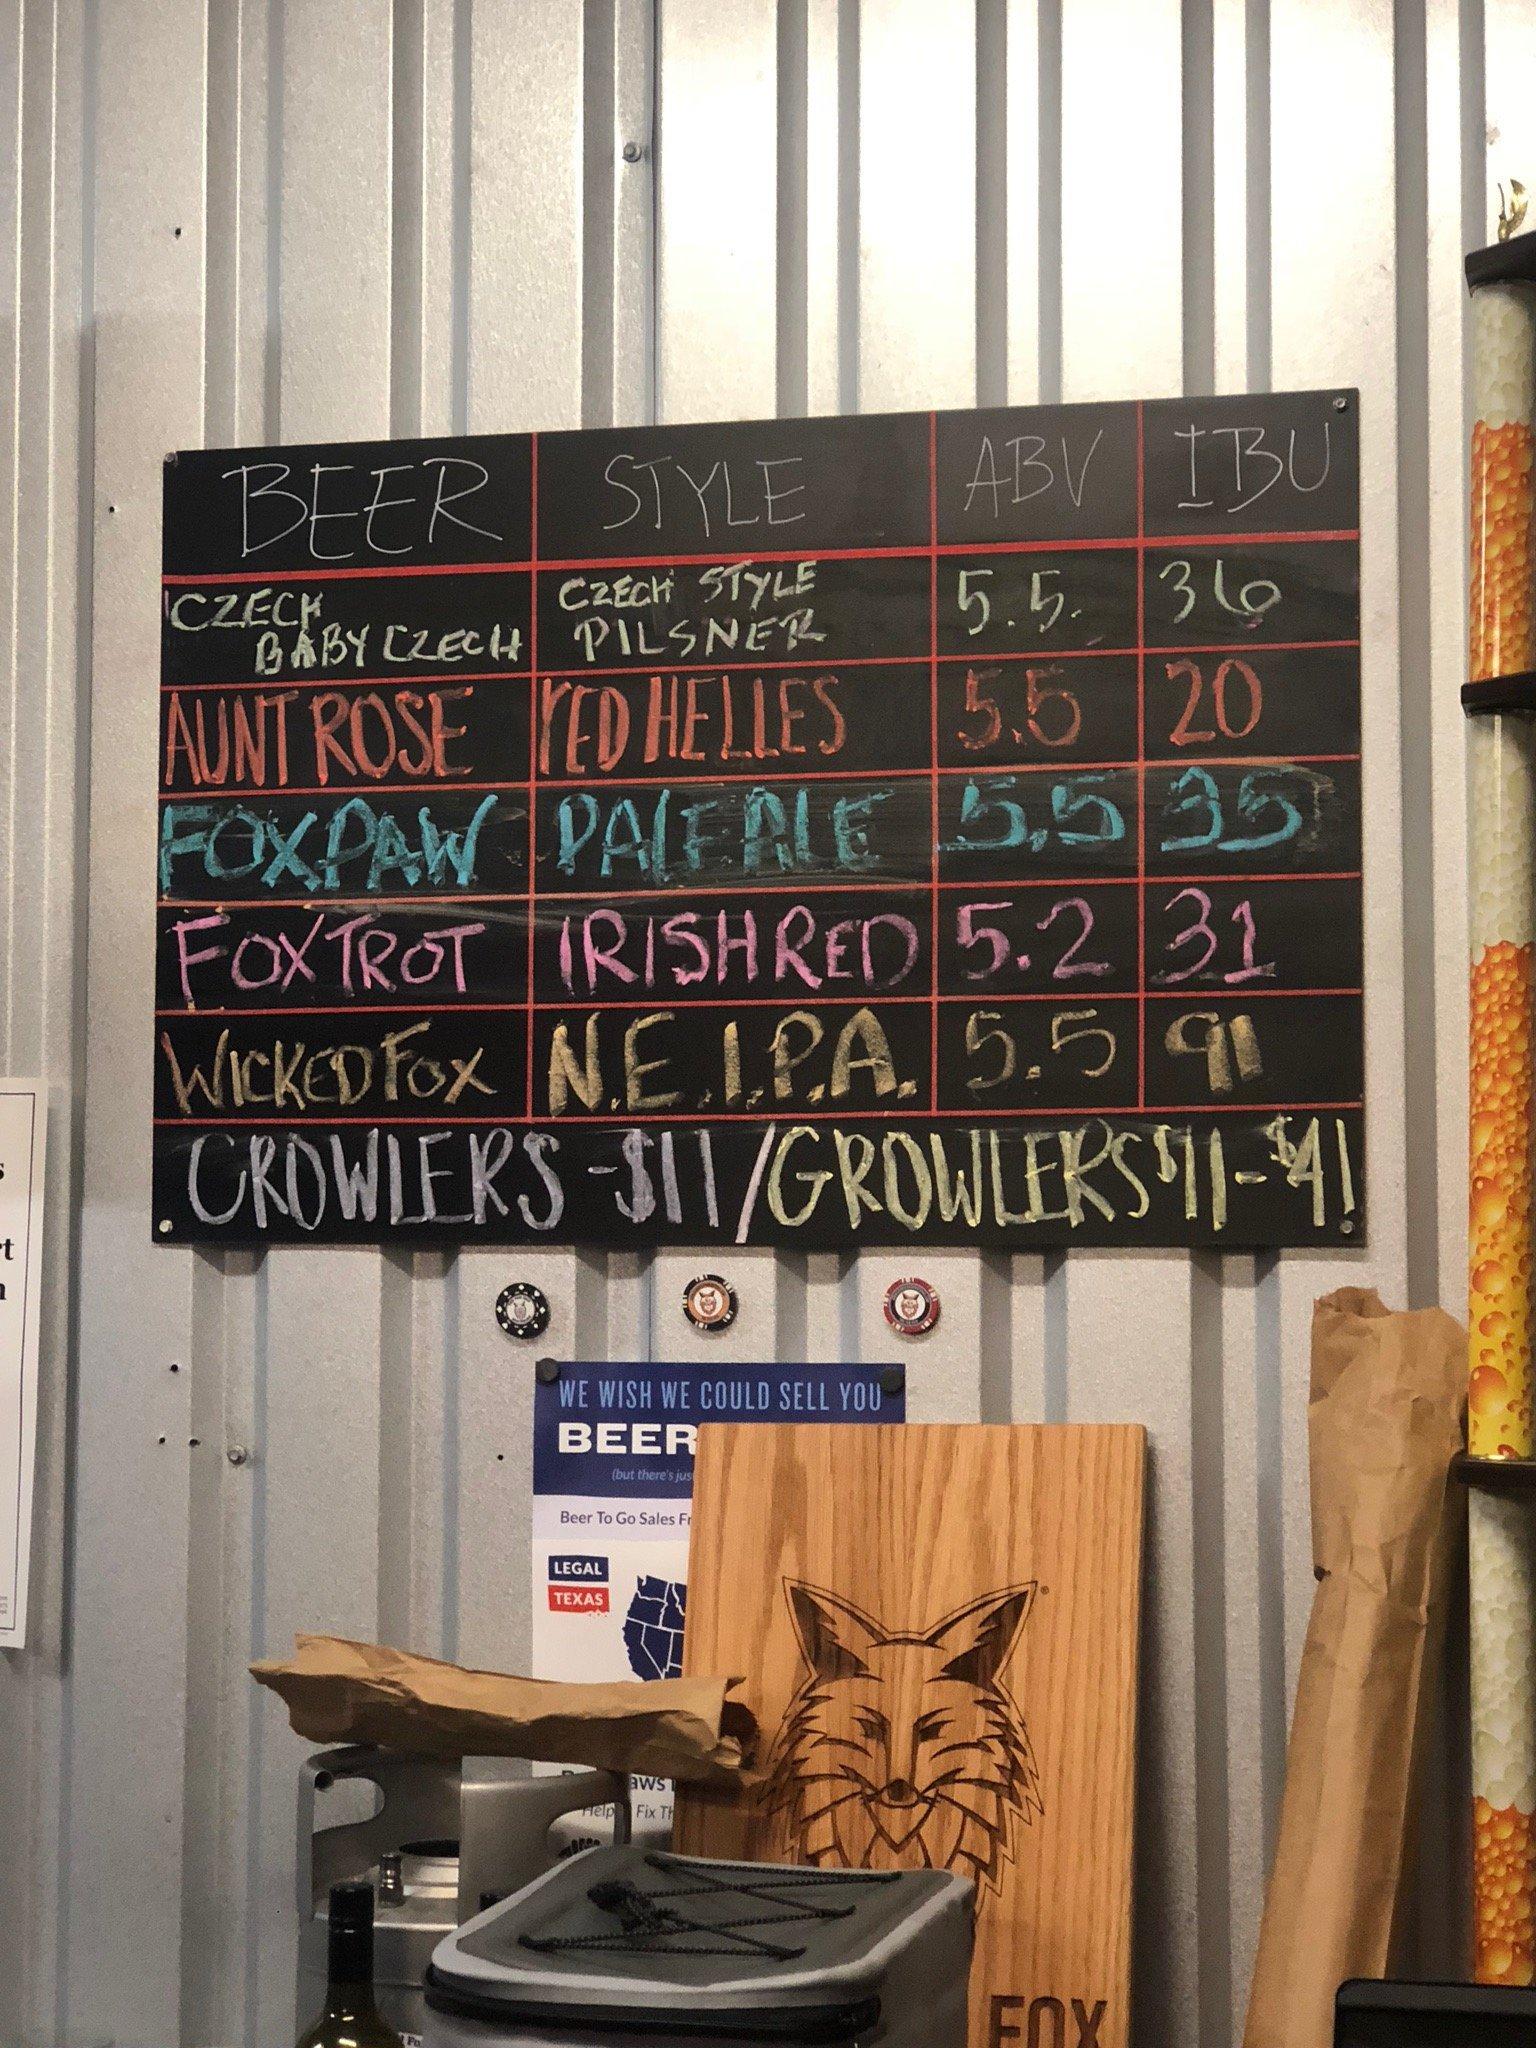 BEER STYLE ABV IBU
CZECH
BABY CZECH
CZECH STYLE
PILSNER
5.5.
36
AUNT ROSE RED HELLES 5.5 20
FOXPAW PALE ALE 5.5 35
FOXTROT IRISH RED 5.2 31
WICKED FOX N.E.I.P.A. 5.5 91
CROWLERS -$11/GROWLERS $11-$41!
WE WISH WE COULD SELL YOU
BEER
(but there's jus
Beer To Go Sales Fr
LEGAL
TEXAS
aws
Help Fix Th
FOX